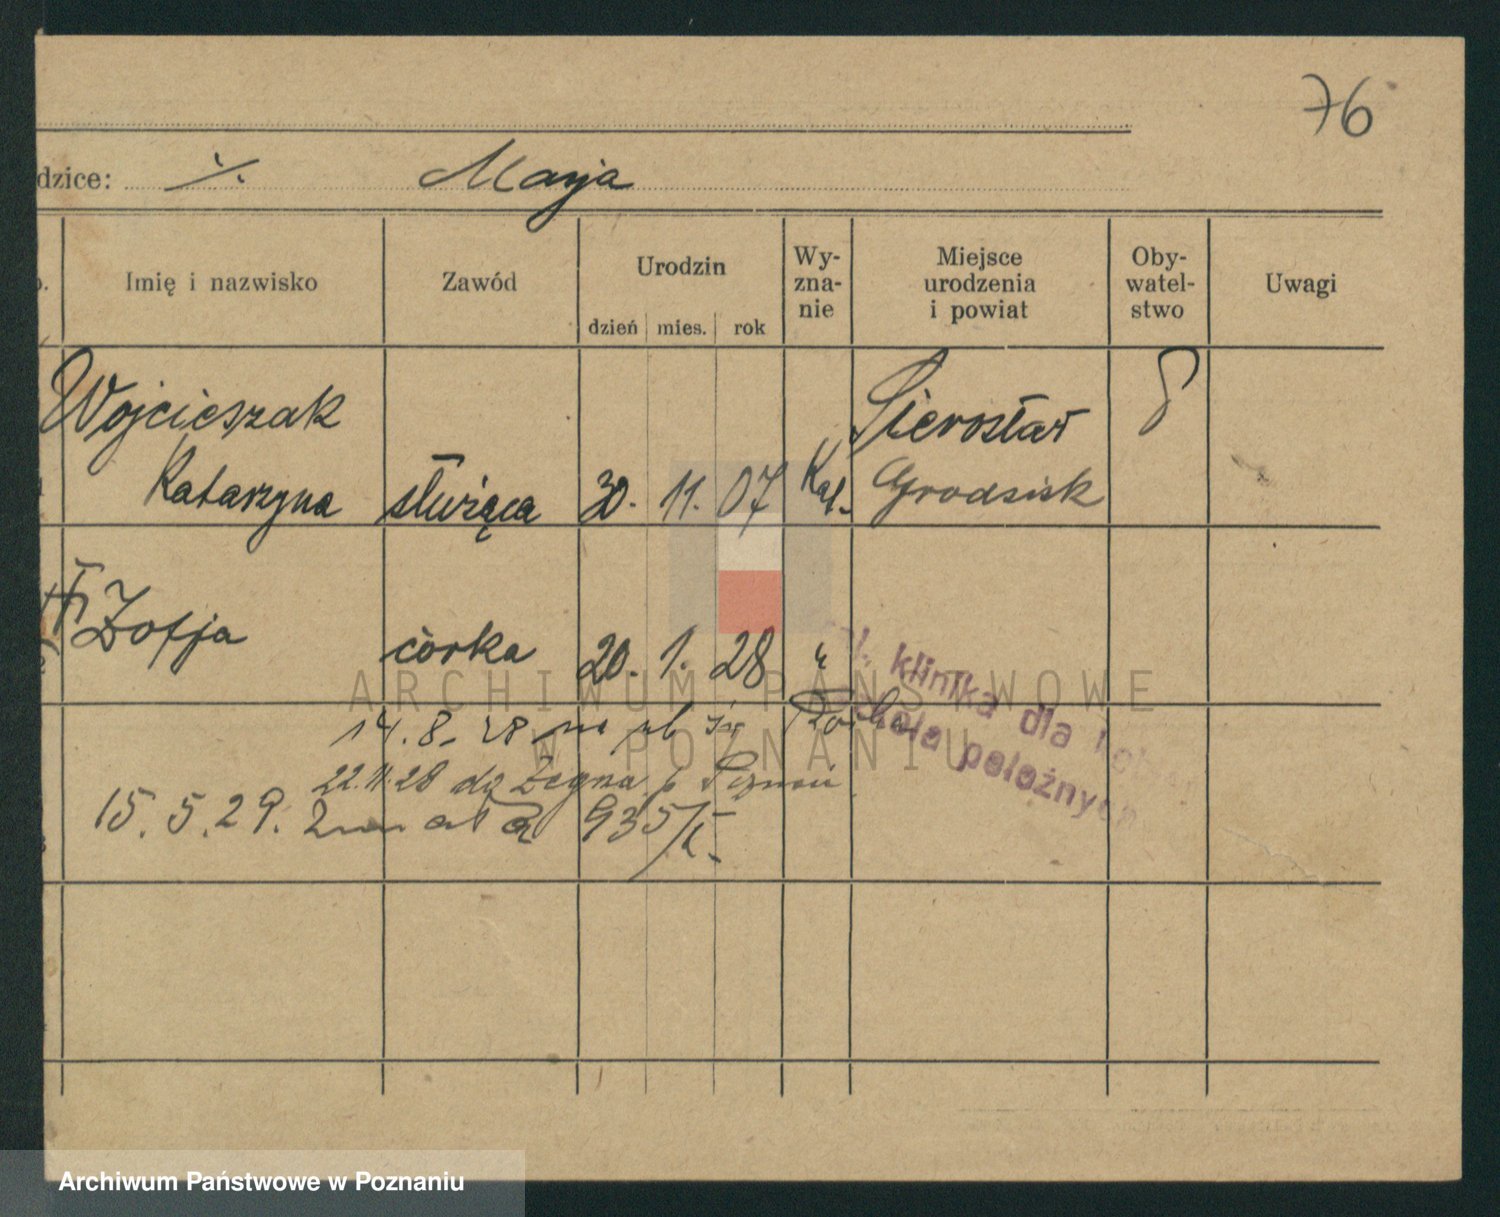 76
dzice: ./. Marja
Imię i nazwisko
Zawód
Urodzin
dzień mies. rok
Wy-
zna-
nie
Miejsce
urodzenia
i powiat
Oby-
watel-
stwo
Uwagi
Wojcieszak
Katarzyna służąca 30. 11. 07 Kat.
Sierosław
Grodzisk
Zofja córka 20. 1. 28 "
I. klinika dla
szkoła położnych
14. 8. 28
22.11.28 do
15. 5. 29. 935/I.
ARCHIWUM PAŃSTWOWE
W POZNANIU
Archiwum Państwowe w Poznaniu